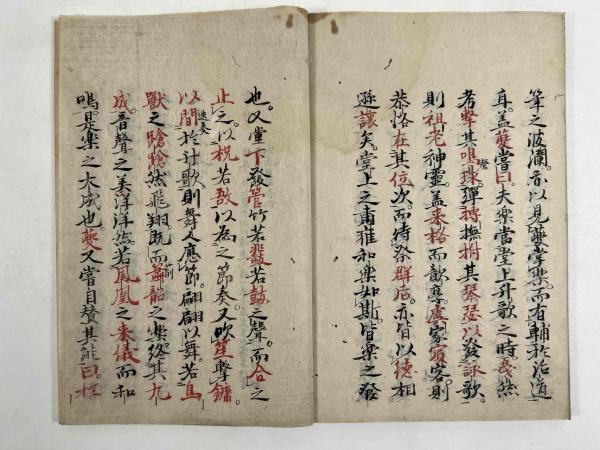 筆之波瀾。亦以見夔掌樂。而有輔於治道
耳。盖夔嘗曰。夫樂當堂上升歌之時。戞然
考擊其鳴球。彈搏撫拊其琴瑟以發詠歌。
則祖考神靈盖来格而歆享。虞家賓客。則
恭恪在其位次。而侍祭群后。亦皆以德相
遜讓矣。堂上之肅雍和樂如斯。皆樂之發
也。又堂下發管竹若鼗若鼓之聲。而合之
止之。以柷若敔以為之節奏。又吹笙擊鏞。
以間迭奏於計歌。則舞人應節。翩翩以舞。若鳥
獸之蹌蹌然飛翔。既而簫韶之樂。終其九
成。音聲之美。洋洋然。若鳳凰之来儀。而和
鳴。是樂之大成也。夔又嘗自賛其能曰。於